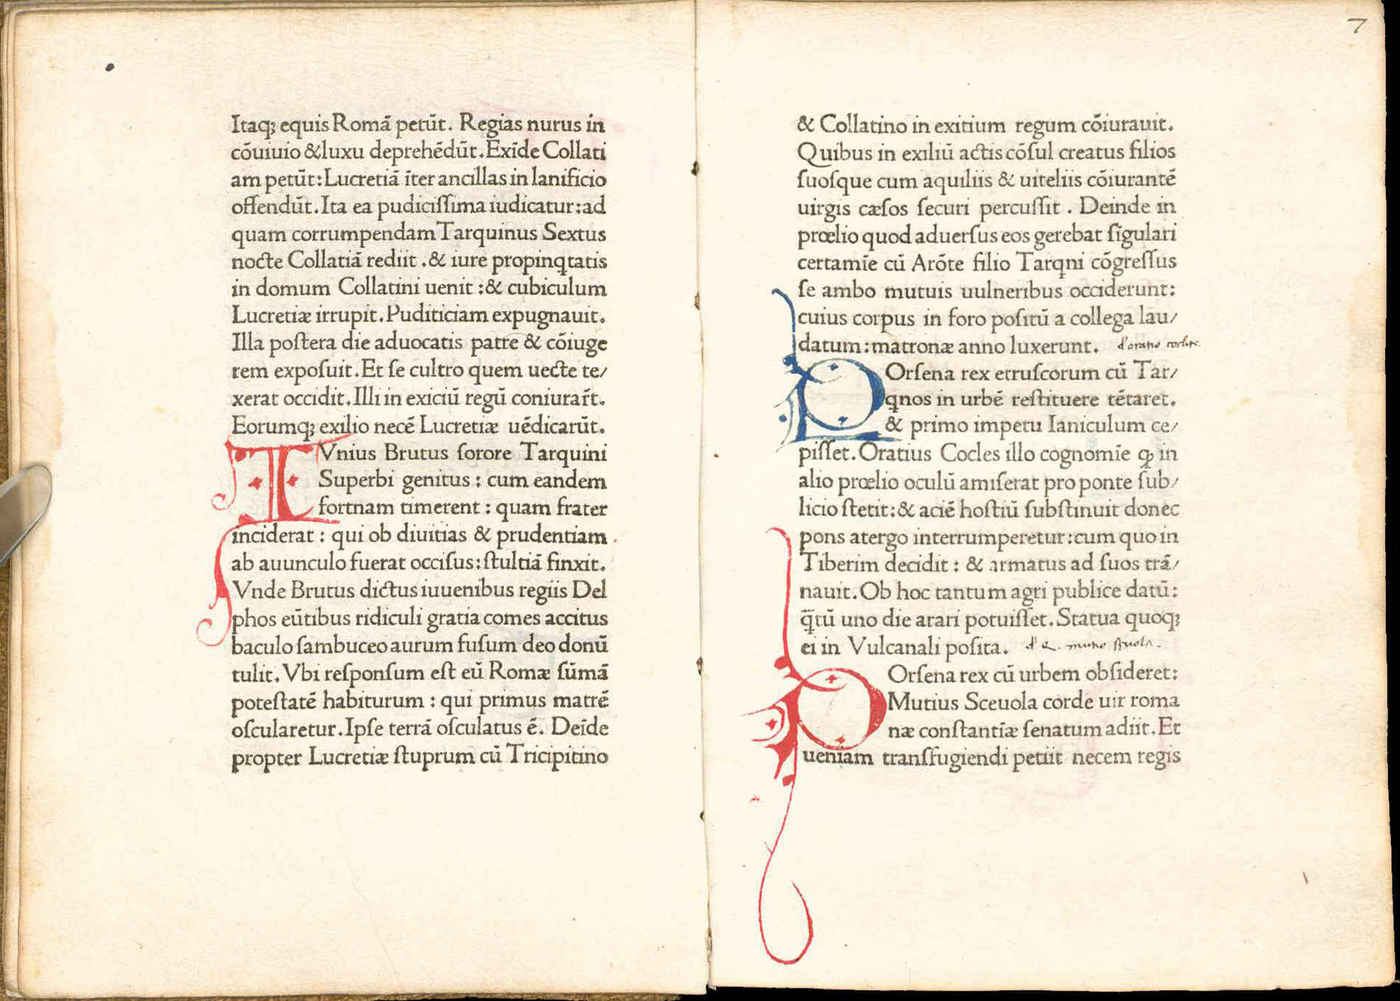 Itaqꝫ equis Romã petũt. Regias nurus in
cõuiuio &luxu deprehẽdũt. Exĩde Collati
am petũt: Lucretiã ĩter ancillas in lanificio
offendũt. Ita ea pudiciſſima iudicatur: ad
quam corrumpendam Tarquinus Sextus
nocte Collatiã rediit .& iure propinq̃tatis
in domum Collatini uenit :& cubiculum
Lucretiæ irrupit. Puditiciam expugnauit.
Illa poſtera die aduocatis patre & cõiuge
rem expoſuit. Et ſe cultro quem uecte te/
xerat occidit. Illi in exiciũ regũ coniurar̃t.
Eorumqꝫ exilio necẽ Lucretiæ uẽdicarũt.
IVnius Brutus ſorore Tarquini
Superbi genitus : cum eandem
fortnam timerent : quam frater
inciderat : qui ob diuitias & prudentiam
ab auunculo fuerat occiſus: ſtultiã finxit.
Vnde Brutus dictus iuuenibus regiis Del
phos eũtibus ridiculi gratia comes accitus
baculo ſambuceo aurum fuſum deo donũ
tulit. Vbi reſponſum eſt eũ Romæ ſũmã
poteſtatẽ habiturum : qui primus matrẽ
oſcularetur. Ipſe terrã oſculatus ẽ. Deĩde
propter Lucretiæ ſtuprum cũ Tricipitino
7
& Collatino in exitium regum cõiurauit.
Quibus in exiliũ actis cõſul creatus filios
ſuoſque cum aquiliis & uiteliis cõiurantẽ
uirgis cæſos ſecuri percuſſit . Deinde in
prœlio quod aduerſus eos gerebat ſĩgulari
certamĩe cũ Arõte filio Tarq̃ni cõgreſſus
ſe ambo mutuis uulneribus occiderunt:
cuius corpus in foro poſitũ a collega lau/
datum: matronæ anno luxerunt.
POrſena rex etruſcorum cũ Tar/
q̃nos in urbẽ reſtituere tẽtaret.
& primo impetu Ianiculum ce/
piſſet. Oratius Cocles illo cognomĩe ꝙ in
alio prœlio oculũ amiſerat pro ponte ſub/
licio ſtetit: & aciẽ hoſtiũ ſubſtinuit donec
pons atergo interrumperetur: cum quo in
Tiberim decidit : & armatus ad ſuos trã/
nauit. Ob hoc tantum agri publice datũ:
q̃tũ uno die arari potuiſſet. Statua quoqꝫ
ei in Vulcanali poſita.
POrſena rex cũ urbem obſideret:
Mutius Sceuola corde uir roma
næ conſtantiæ ſenatum adiit. Et
ueniam tranſfugiendi petiit necem regis